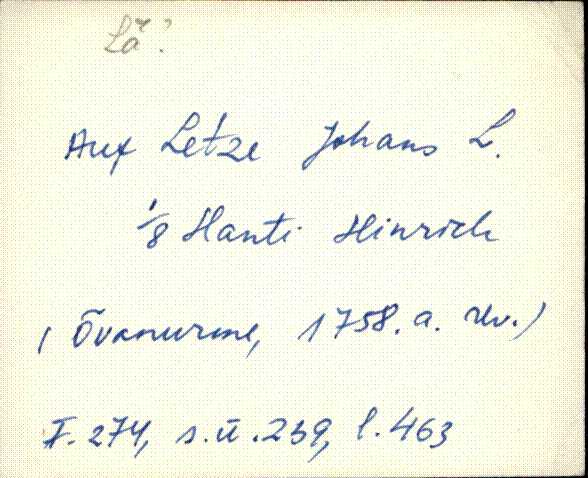 Lä?
Auf Letze Johans L.
1/8 Hanti Hinrich
(Õvanurme, 1758. a. rev.)
F. 274, s.ü. 239, l. 463